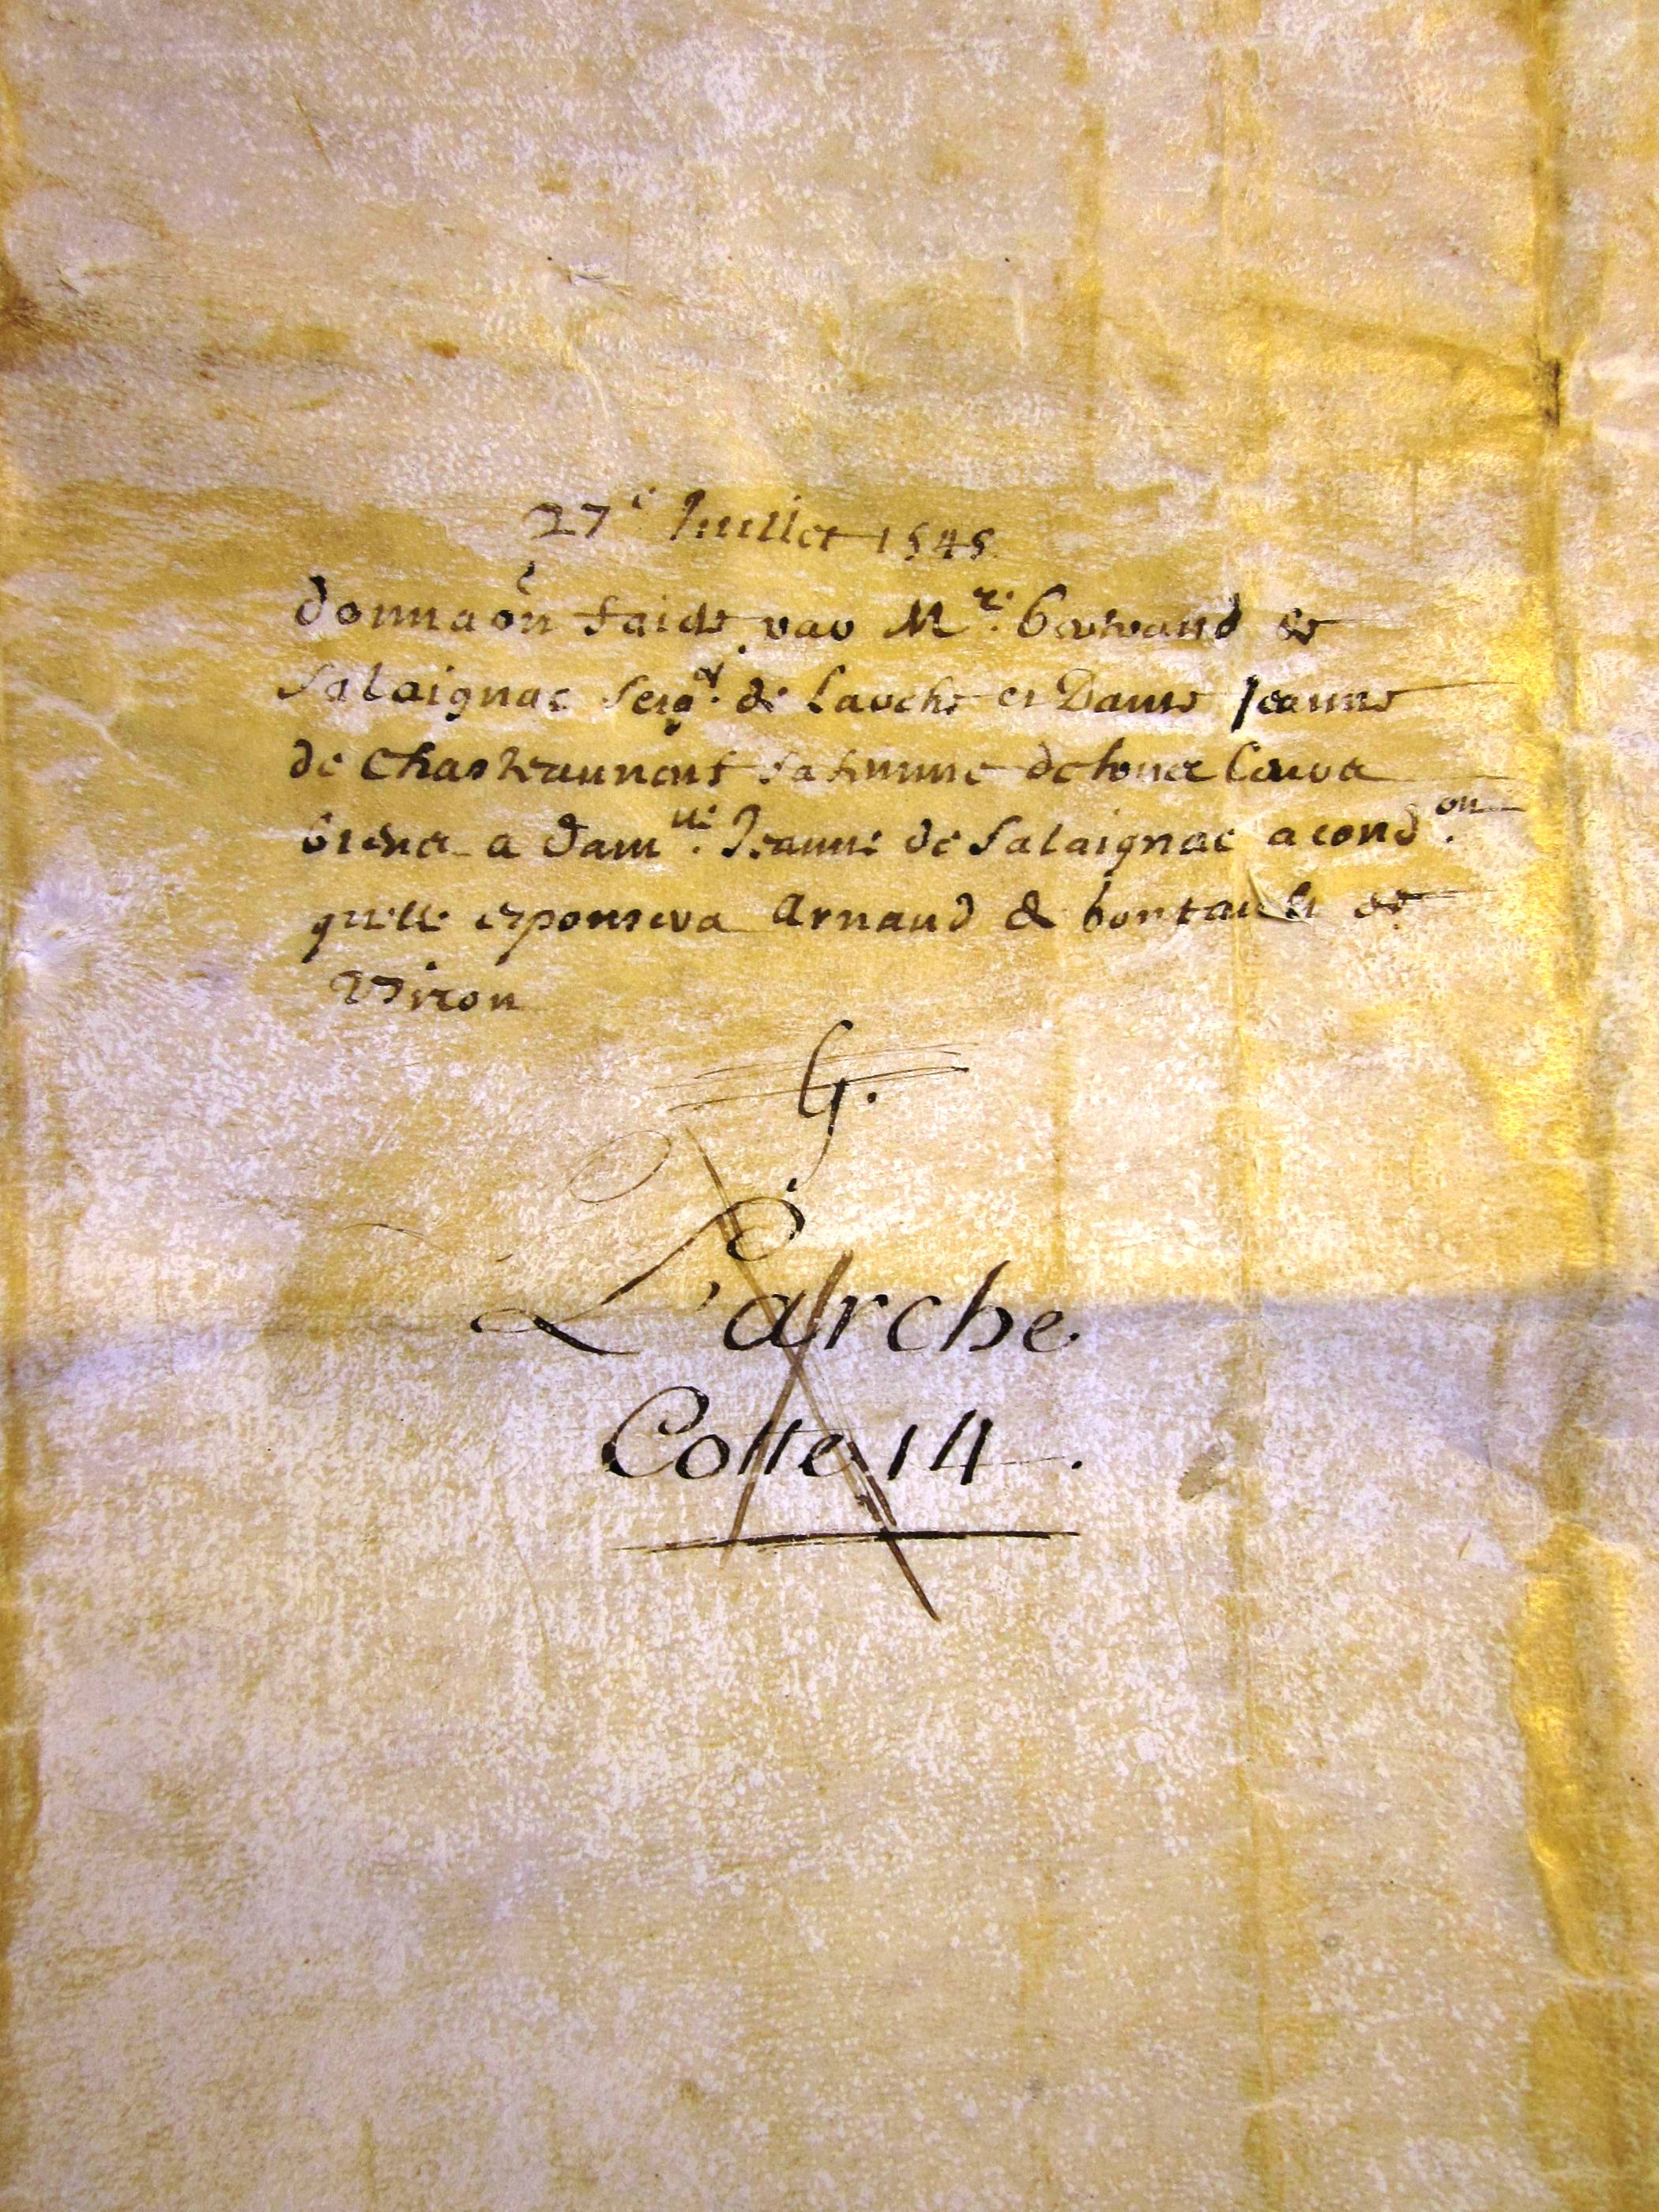 27e Juillet 1545
donnaon faicte par Mre. bertrand de
Salaignac Seigr. de Larche et Dame Jeanne
de Chasteauneuf sa femme de touts leurs
biens a Damlle. Jeanne de Salaignac a condon.
quelle espousera Arnaud de bontault de
G.
L'arche
Cotte 14.